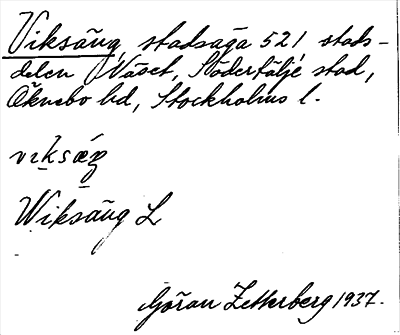 Viksäng, stadsäga 521, stads-
delen Näset, Södertälje stad,
Öknebo hd, Stockholms l.
vɪksæŋ
Wiksäng L
Göran Zetterberg 1937.